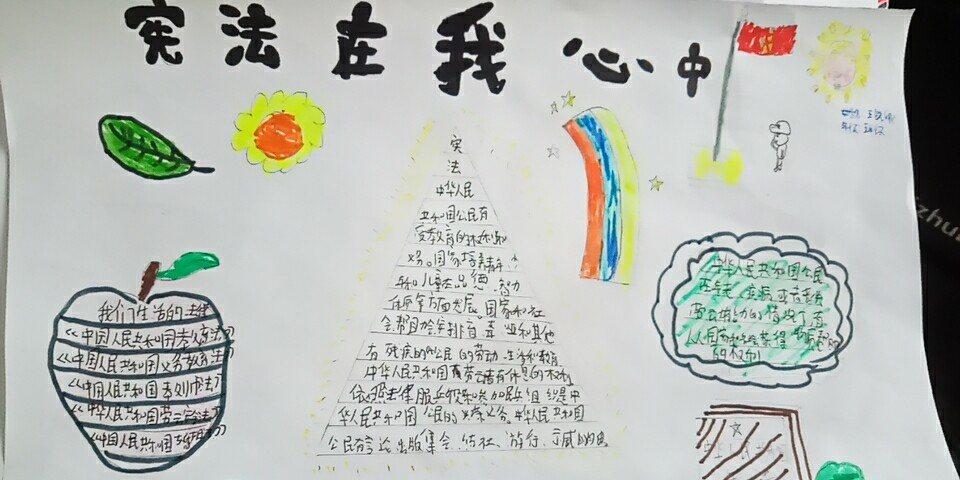 宪法在我心中
宪
法
中华人民
共和国公民有
受教育的权利和
义务。国家培养青
和儿童在品德、智力
体质等方面发展 国家和社
会帮助安排盲 聋 哑和其他
有残疾的公民的劳动 生活和教育
中华人民共和国劳动者有休息的权利
依法服兵役和参加民兵组织是中
华人民共和国公民的义务。中华人民共和国
公民有言论 出版 集会 结社、游行、示威的自
我们生活的法律
《中国人民共和国
《中国人民共和国义务教育法》
《中国人民共和国
《中华人民共和国劳动合法》
《中国人民共和国
中华人民共和国公民
在年老、疾病或者丧失
劳动能力的情况下有
从国家和社会获得物质帮助
的权利
文
zhu